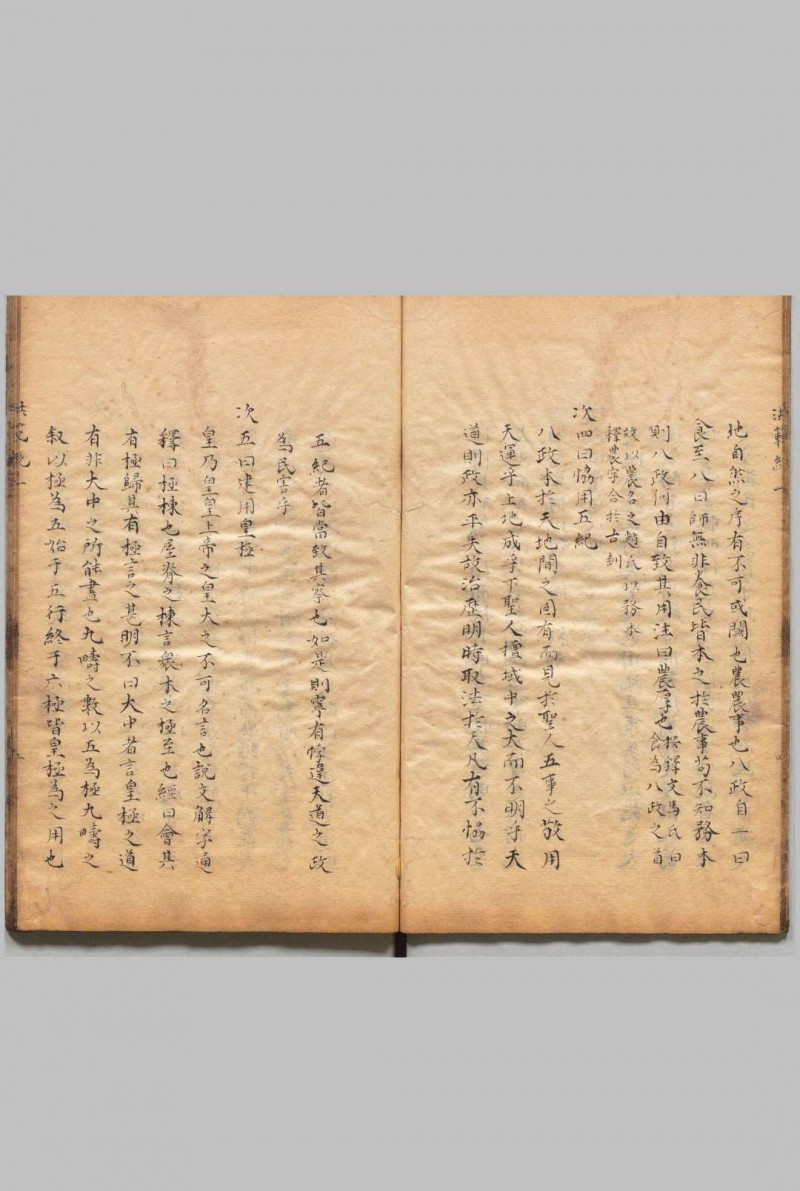 地自然之序有不可或闕也農農事也八政自一曰
食至八曰師無非食民皆本之於農事苟不知務本
則八政何由自致其用注曰農厚也
按釋文馬氏曰
食為八政之首
故以農名之趙氏以務本
釋農字合於古訓
次四曰恊用五紀
八政本於天地間之固有而見於聖人五事之敬用
天運乎上地成乎下聖人擅域中之大而不明乎天
道則政亦平失故治歷明時取法於天凡有不恊於
五紀者皆當致其察也如是則寧有悖違天道之政
為民害乎
次五曰建用皇極
皇乃皇皇上帝之皇大之不可名言也說文解字通
釋曰極棟也屋脊之棟言衆木之極至也經曰會其
有極歸其有極言之甚明不曰大中者言皇極之道
有非大中之所能盡也九疇之數以五為極九疇之
叙以極為五始于五行終于六極皆皇極為之用也